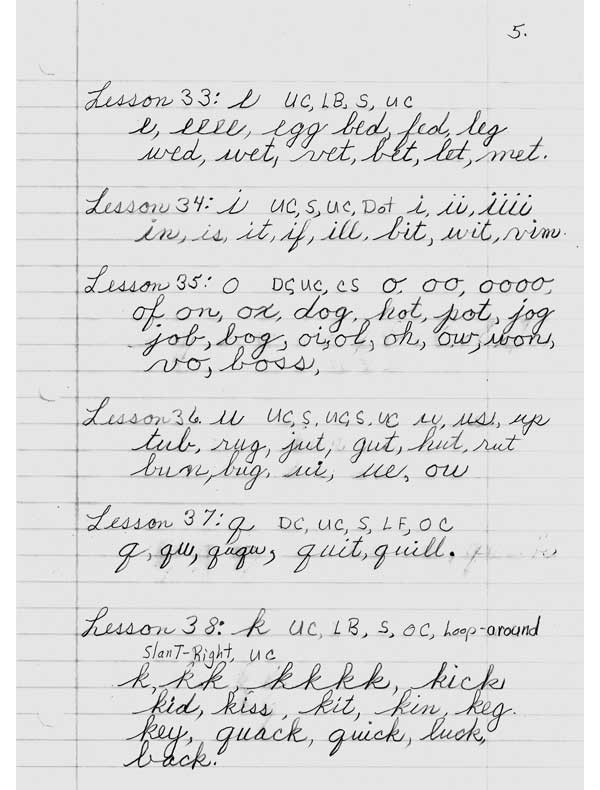 5.
Lesson 33: e UC, LB, S, UC
e, eeee, egg bed, fed, leg
wed, wet, vet, bet, let, met.
Lesson 34: i UC, S, UC, Dot i, ii, iiii
in, is, it, if, ill, bit, wit, vim.
Lesson 35: O DC, UC, CS O, oo, oooo,
of on, ox, dog, hot, pot, jog
job, bog, oi, ol, oh, ow, won,
vo, boss,
Lesson 36. u UC, S, UC, S, UC u, us, up
tub, rug, jut, gut, hut, rut
bun, bug, ui, ue, ou
Lesson 37: q DC, UC, S, LF, OC
q, qu, ququ, quit, quill.
Lesson 38: k UC, LB, S, OC, Loop-around
SlanT-Right, UC
k, kk, kkkk, kick
kid, kiss, kit, kin, keg.
key, quack, quick, luck,
back.